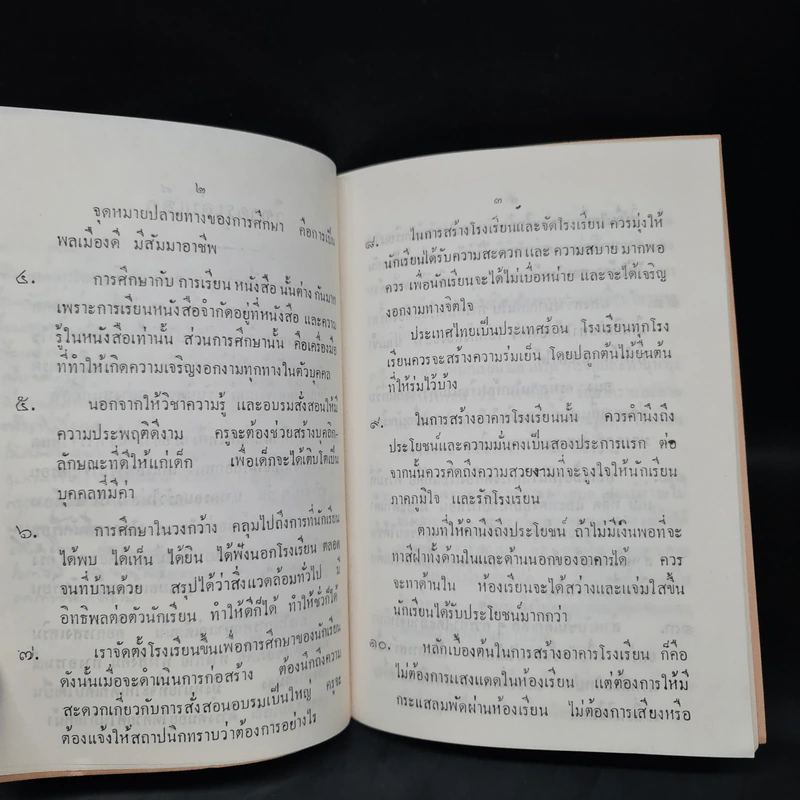 ๒
จุดหมายปลายทางของการศึกษา คือการเป็น
พลเมืองดี มีสัมมาอาชีพ
๔. การศึกษากับ การเรียน หนังสือ นั้นต่าง กันมาก
เพราะการเรียนหนังสือจำกัดอยู่ที่หนังสือ และความ
รู้ในหนังสือเท่านั้น ส่วนการศึกษานั้น คือเครื่องมือ
ที่ทำให้เกิดความเจริญงอกงามทุกทางในตัวบุคคล
๕. นอกจากให้วิชาความรู้ และอบรมสั่งสอนให้มี
ความประพฤติดีงาม ครูจะต้องช่วยสร้างบุคลิก-
ลักษณะที่ดีให้แก่เด็ก เพื่อเด็กจะได้เติบโตเป็น
บุคคลที่มีค่า
๖. การศึกษาในวงกว้าง คลุมไปถึงการที่นักเรียน
ได้พบ ได้เห็น ได้ยิน ได้ฟังนอกโรงเรียน ตลอด
จนที่บ้านด้วย สรุปได้ว่าสิ่งแวดล้อมทั่วไป มี
อิทธิพลต่อตัวนักเรียน ทำให้ดีก็ได้ ทำให้ชั่วก็ได้
๗. เราจัดตั้งโรงเรียนขึ้นเพื่อการศึกษาของนักเรียน
ดังนั้นเมื่อจะดำเนินการก่อสร้าง ต้องนึกถึงความ
สะดวกเกี่ยวกับการสั่งสอนอบรมเป็นใหญ่ ครูจะ
ต้องแจ้งให้สถาปนิกทราบว่าต้องการอย่างไร
๓
๘. ในการสร้างโรงเรียนและจัดโรงเรียน ควรมุ่งให้
นักเรียนได้รับความสะดวก และ ความสบาย มากพอ
ควร เพื่อนักเรียนจะได้ไม่เบื่อหน่าย และจะได้เจริญ
งอกงามทางจิตใจ
ประเทศไทยเป็นประเทศร้อน โรงเรียนทุกโรง
เรียนควรจะสร้างความร่มเย็น โดยปลูกต้นไม้ยืนต้น
ที่ให้ร่มไว้บ้าง
๙. ในการสร้างอาคารโรงเรียนนั้น ควรคำนึงถึง
ประโยชน์และความมั่นคงเป็นสองประการแรก ต่อ
จากนั้นควรคิดถึงความสวยงามที่จะจูงใจให้นักเรียน
ภาคภูมิใจ และรักโรงเรียน
ตามที่ให้คำนึงถึงประโยชน์ ถ้าไม่มีเงินพอที่จะ
ทาสีฝาทั้งด้านในและด้านนอกของอาคารได้ ควร
จะทาด้านใน ห้องเรียนจะได้สว่างและแจ่มใสขึ้น
นักเรียนได้รับประโยชน์มากกว่า
๑๐. หลักเบื้องต้นในการสร้างอาคารโรงเรียน ก็คือ
ไม่ต้องการแสงแดดในห้องเรียน แต่ต้องการให้มี
กระแสลมพัดผ่านห้องเรียน ไม่ต้องการเสียงหรือ